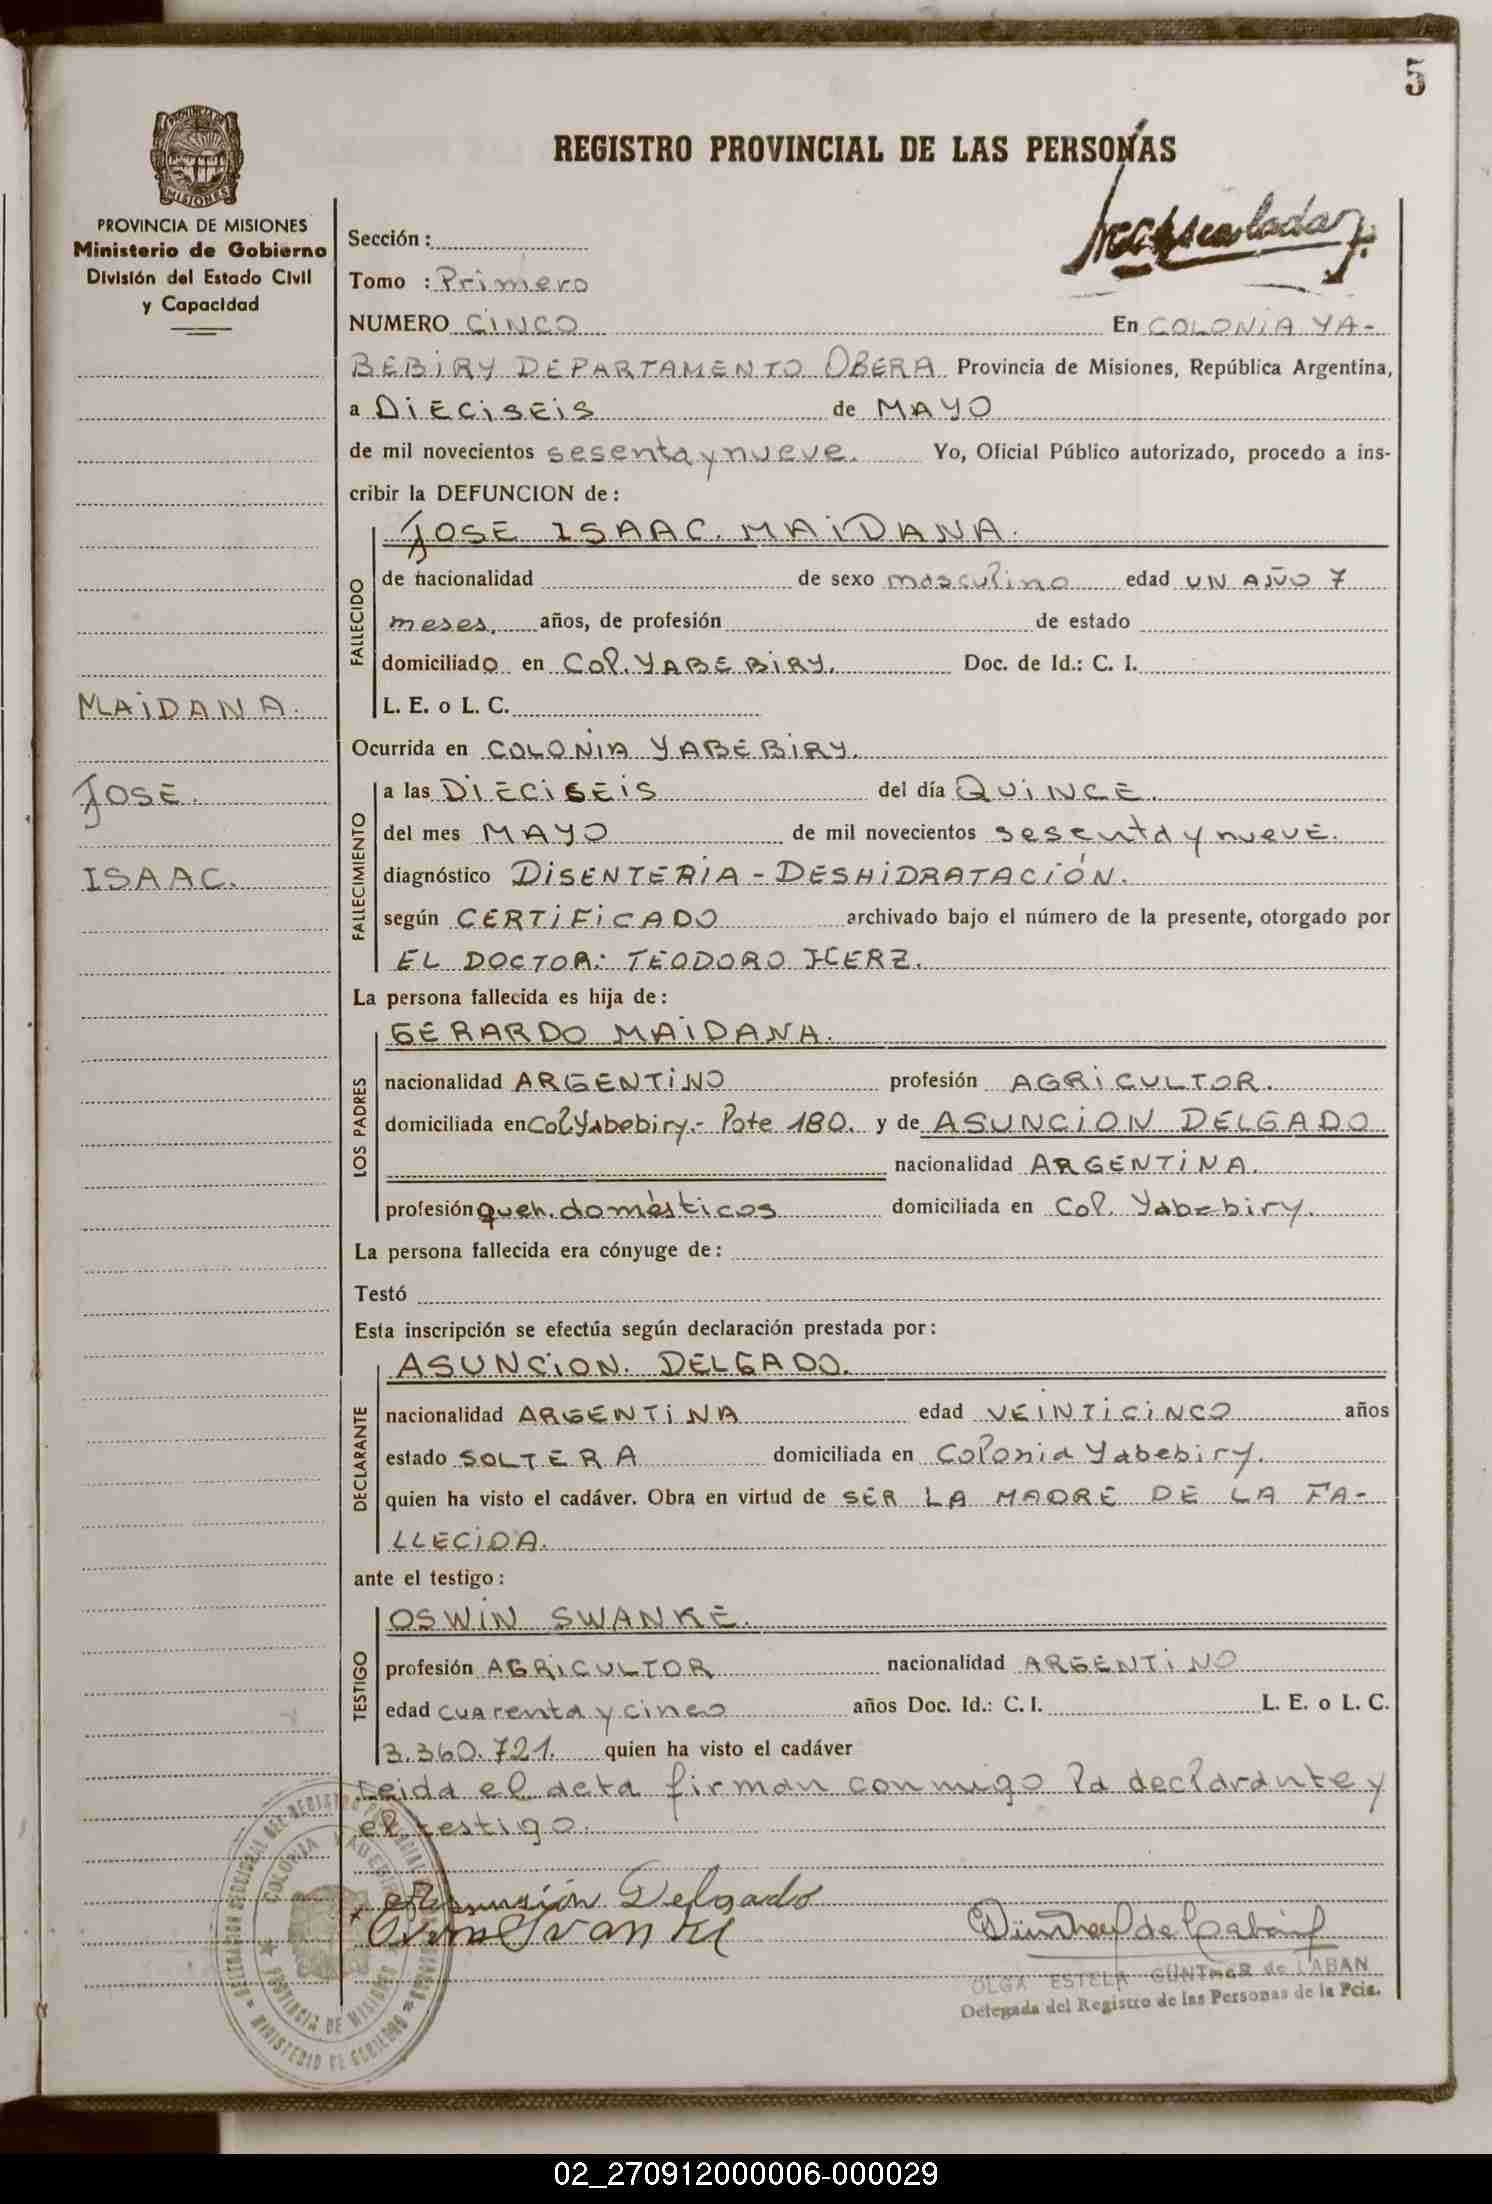 5
REGISTRO PROVINCIAL DE LAS PERSONAS
PROVINCIA DE MISIONES
Ministerio de Gobierno
División del Estado Civil
y Capacidad
Sección:
Tomo : Primero
NUMERO CINCO En COLONIA YA-
BEBIRY DEPARTAMENTO OBERA Provincia de Misiones, República Argentina,
a DIECISEIS de MAYO
de mil novecientos sesenta y nueve. Yo, Oficial Público autorizado, procedo a ins-
cribir la DEFUNCION de:
JOSE ISAAC MAIDANA.
FALLECIDO
de nacionalidad de sexo masculino edad UN AÑO 7
meses, años, de profesión de estado
domiciliado en Col. YABEBIRY. Doc. de Id.: C. I.
MAIDANA.
L. E. o L. C.
Ocurrida en COLONIA YABEBIRY.
JOSE.
FALLECIMIENTO
a las DIECISEIS del día QUINCE.
del mes MAYO de mil novecientos sesenta y nueve.
ISAAC.
diagnóstico DISENTERIA - DESHIDRATACIÓN.
según CERTIFICADO archivado bajo el número de la presente, otorgado por
EL DOCTOR: TEODORO HERZ.
La persona fallecida es hija de:
GERARDO MAIDANA.
LOS PADRES
nacionalidad ARGENTINO profesión AGRICULTOR.
domiciliada en Col Yabebiry.- lote 180. y de ASUNCION DELGADO
nacionalidad ARGENTINA.
profesión queh. domésticos domiciliada en Col. Yabebiry.
La persona fallecida era cónyuge de:
Testó
Esta inscripción se efectúa según declaración prestada por:
ASUNCION. DELGADO.
DECLARANTE
nacionalidad ARGENTINA edad VEINTICINCO años
estado SOLTERA domiciliada en Colonia Yabebiry.
quien ha visto el cadáver. Obra en virtud de SER LA MADRE DE LA FA-
LLECIDA.
ante el testigo:
OSWIN SWANKE.
TESTIGO
profesión AGRICULTOR nacionalidad ARGENTINO
edad cuarenta y cinco años Doc. Id.: C. I. L. E. o L. C.
3.360.721. quien ha visto el cadáver
Leida el acta firman conmigo la declarante y
el testigo.
Asunción Delgado
OLGA ESTELA GÜNTHER de LABAN
Delegada del Registro de las Personas de la Pcia.
PROVINCIA DE MISIONES
MINISTERIO DE GOBIERNO
02_270912000006-000029